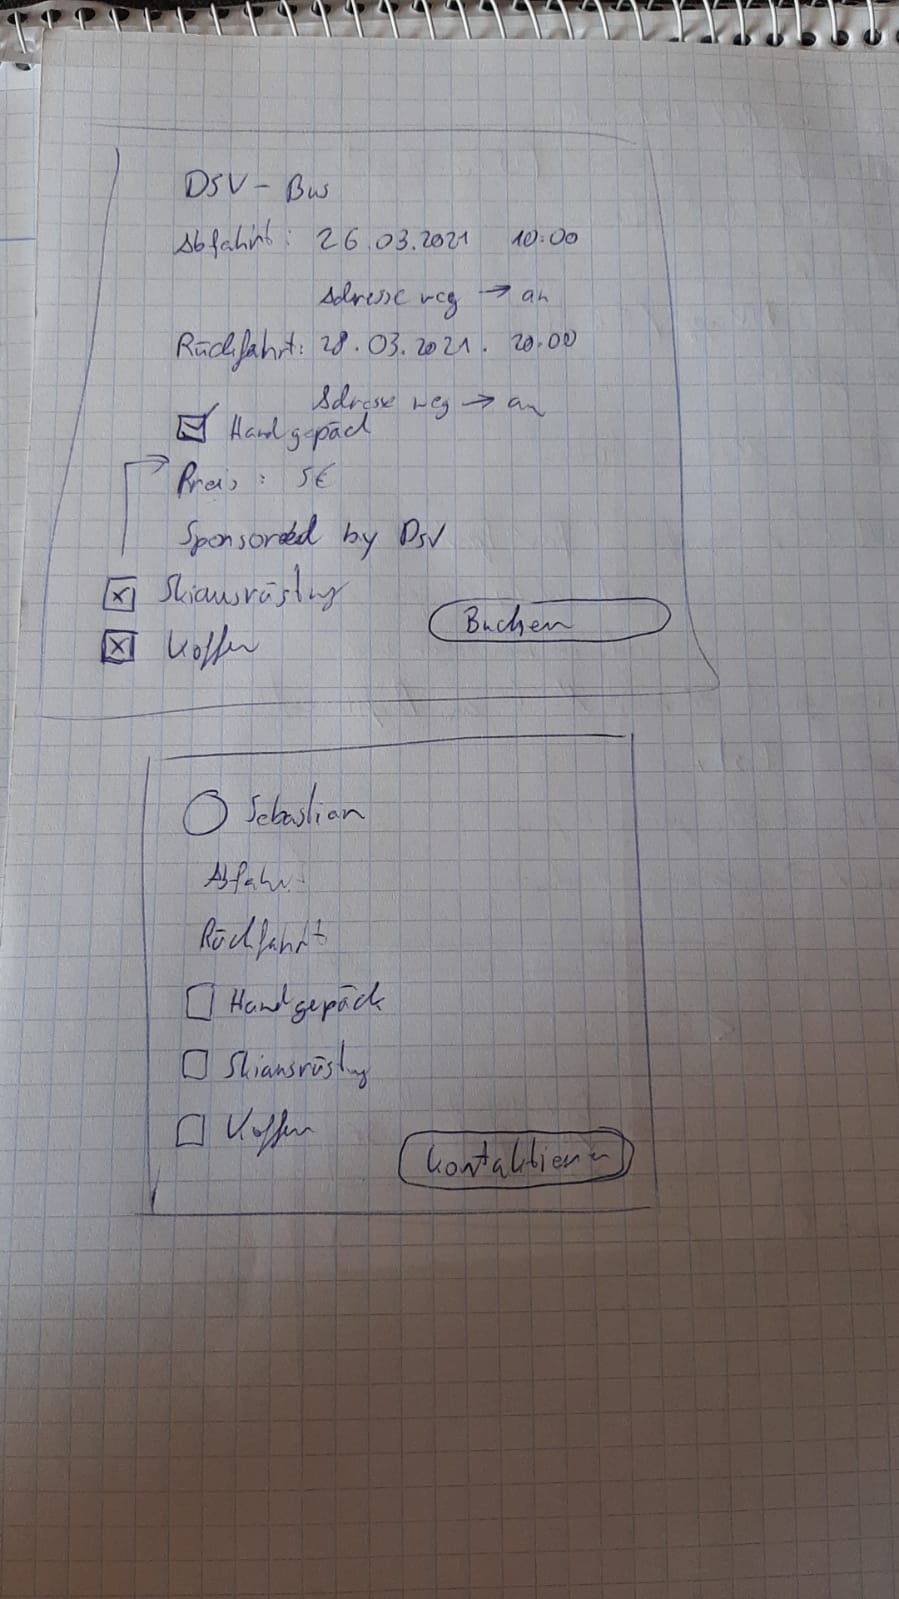 DSV - Bus
Abfahrt: 26.03.2021 10:00
Adresse weg → an
Rückfahrt: 28.03.2021. 20:00
Adresse weg → an
Handgepäck
Preis: 5€
Sponsored by DSV
Skiausrüstung
Koffer
Buchen
Sebastian
Abfahrt
Rückfahrt
Handgepäck
Skiausrüstung
Koffer
Kontaktieren